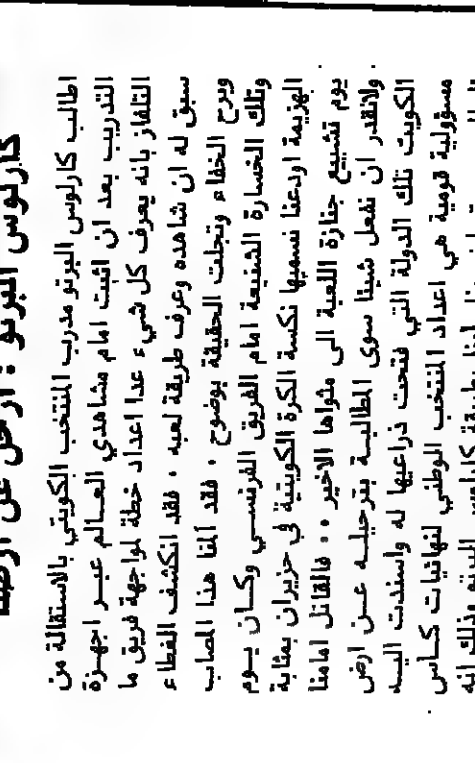 كارلوس البرتو : ارحل عن ارضنا
اطالب كارلوس البرتو مدرب المنتخب الكويتي بالاستقالة من
التدريب بعد ان اثبت امام مشاهدي العالم عبر اجهزة
التلفاز بانه يعرف كل شيء عدا اعداد خطة لمواجهة فريق ما
سبق له ان شاهده وعرف طريقة لعبه ، فقد انكشف الغطاء
وبرح الخفاء وتجلت الحقيقة بوضوح ٠ فقد آلمنا هذا المصاب
وتلك الخسارة الشنيعة امام الفريق الفرنسي وكان يوم
الهزيمة اودعنا نسميها نكسة الكرة الكويتية في حزيران بمثابة
يوم تشييع جنازة اللعبة الى مثواها الاخير ٠٠ فالقاتل امامنا
ولانقدر ان نفعل شيئا سوى المطالبة بترحيله عن ارض
الكويت تلك الدولة التي فتحت ذراعيها له واسندت اليه
مسؤولية قومية هي اعداد المنتخب الوطني لنهائيات كاس
كارلوس البرتو وذلك انه